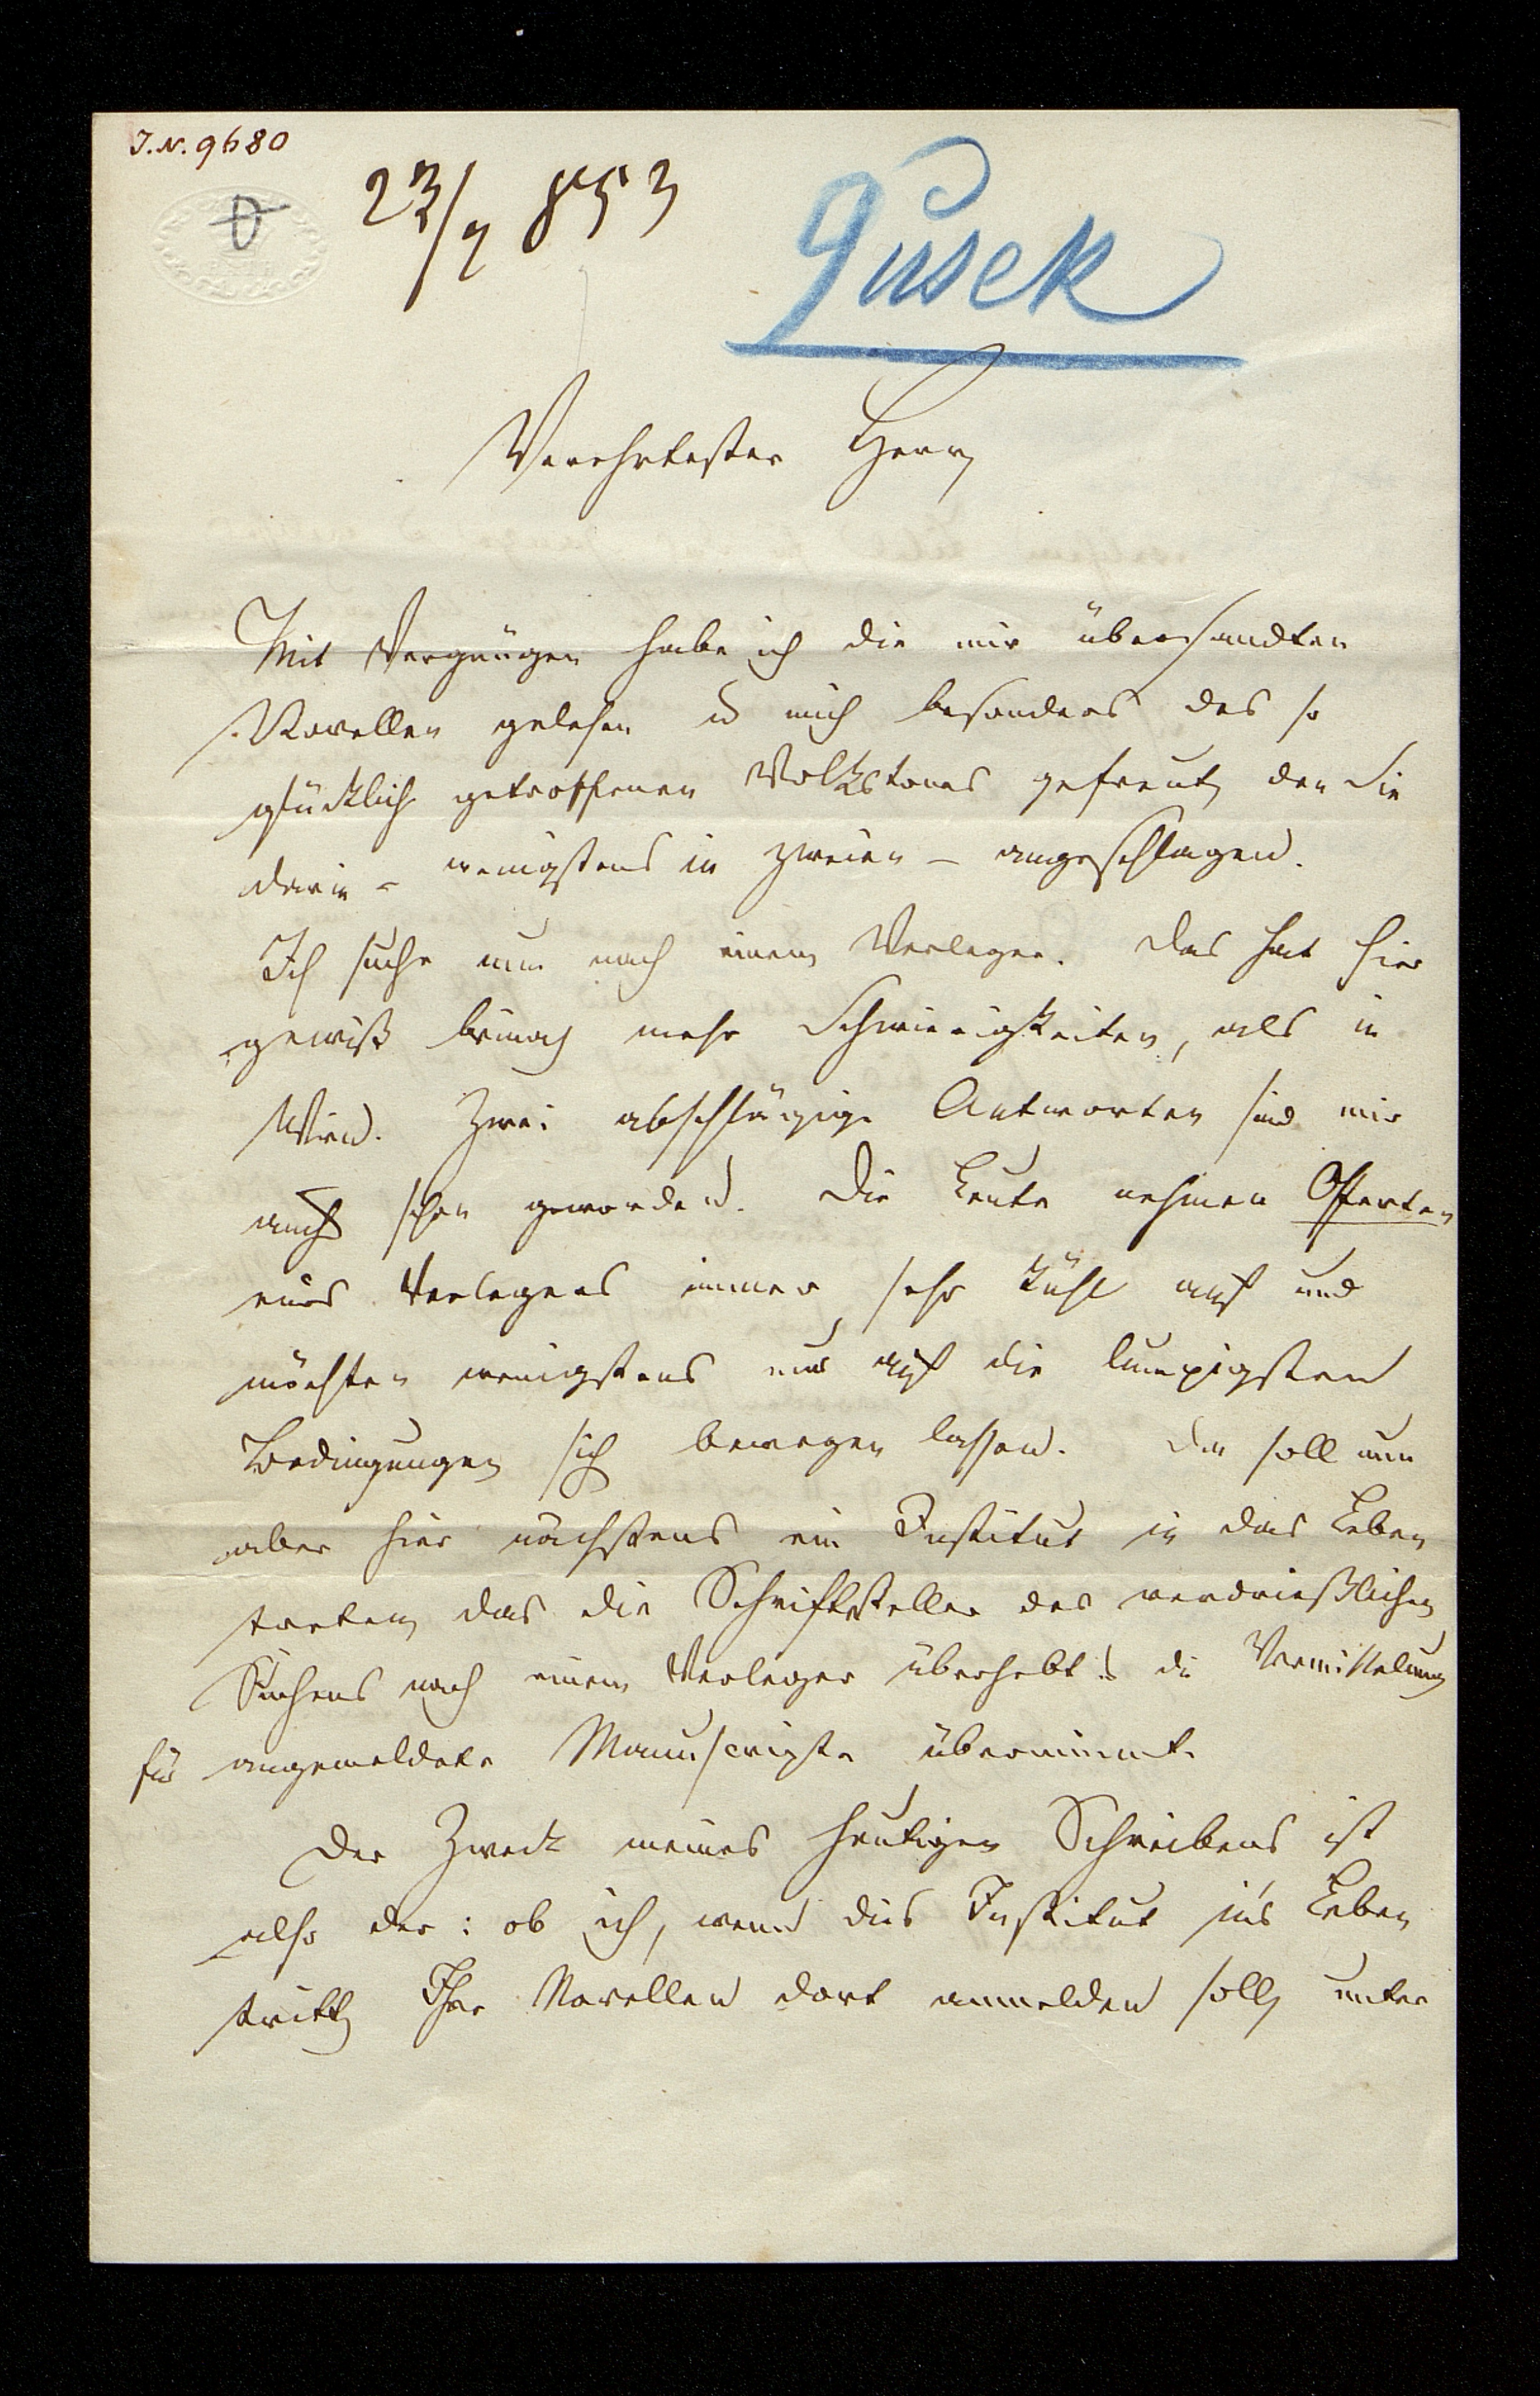 I.N. 9680
23/9 853
Gusek
Verehrtester Herr,
Mit Vergnügen habe ich die mir übersandten
Novellen gelesen u mich besonders des so
glücklich getroffenen Volkstones gefreut, den Sie
darin – wenigstens in zweien – angeschlagen.
Ich suche nun nach einem Verleger. Das hat hier
gewiß beinah mehr Schwierigkeiten, als in
Wien. Zwei abschlägige Antworten sind mir
auch schon geworden. Die Leute nehmen Offerten
eines Verlegers immer sehr kühl auf und
möchten wenigstens nur auf die lumpigsten
Bedingungen sich bewegen lassen. Da soll nun
aber hier nächstens ein Institut in das Leben
treten, das die Schriftsteller des verdrießlichen
Suchens nach einem Verleger überhebt u die Vermittelung
für angemeldete Manuscripte übernimmt.
Der Zweck meines heutigen Schreibens ist
also der: ob ich, wenn dies Institut in's Leben
tritt, Ihre Novellen dort anmelden soll, unter